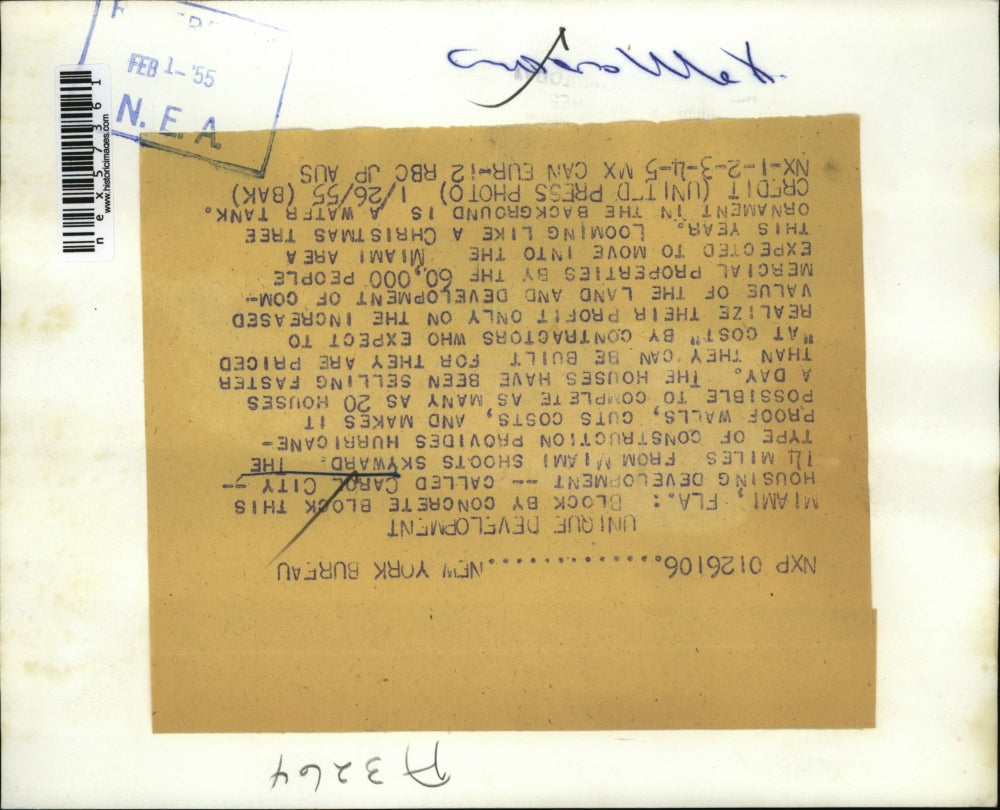 NXP 0126106..............NEW YORK BUREAU
UNIQUE DEVELOPMENT
MIAMI, FLA.: BLOCK BY CONCRETE BLOCK THIS
HOUSING DEVELOPMENT -- CALLED CAROL CITY --
14 MILES FROM MIAMI SHOOTS SKYWARD. THE
TYPE OF CONSTRUCTION PROVIDES HURRICANE-
PROOF WALLS, CUTS COSTS, AND MAKES IT
POSSIBLE TO COMPLETE AS MANY AS 20 HOUSES
A DAY. THE HOUSES HAVE BEEN SELLING FASTER
THAN THEY CAN BE BUILT FOR THEY ARE PRICED
"AT COST" BY CONTRACTORS WHO EXPECT TO
REALIZE THEIR PROFIT ONLY ON THE INCREASED
VALUE OF THE LAND AND DEVELOPMENT OF COM-
MERCIAL PROPERTIES BY THE 60,000 PEOPLE
EXPECTED TO MOVE INTO THE MIAMI AREA
THIS YEAR. LOOMING LIKE A CHRISTMAS TREE
ORNAMENT IN THE BACKGROUND IS A WATER TANK.
CREDIT (UNITED PRESS PHOTO) 1/26/55 (BAK)
NX-1-2-3-4-5 MX CAN EUR-12 RBC JP AUS
FEB 1-'55
N. E. A.
nex57361
www.historicimages.com
A3264